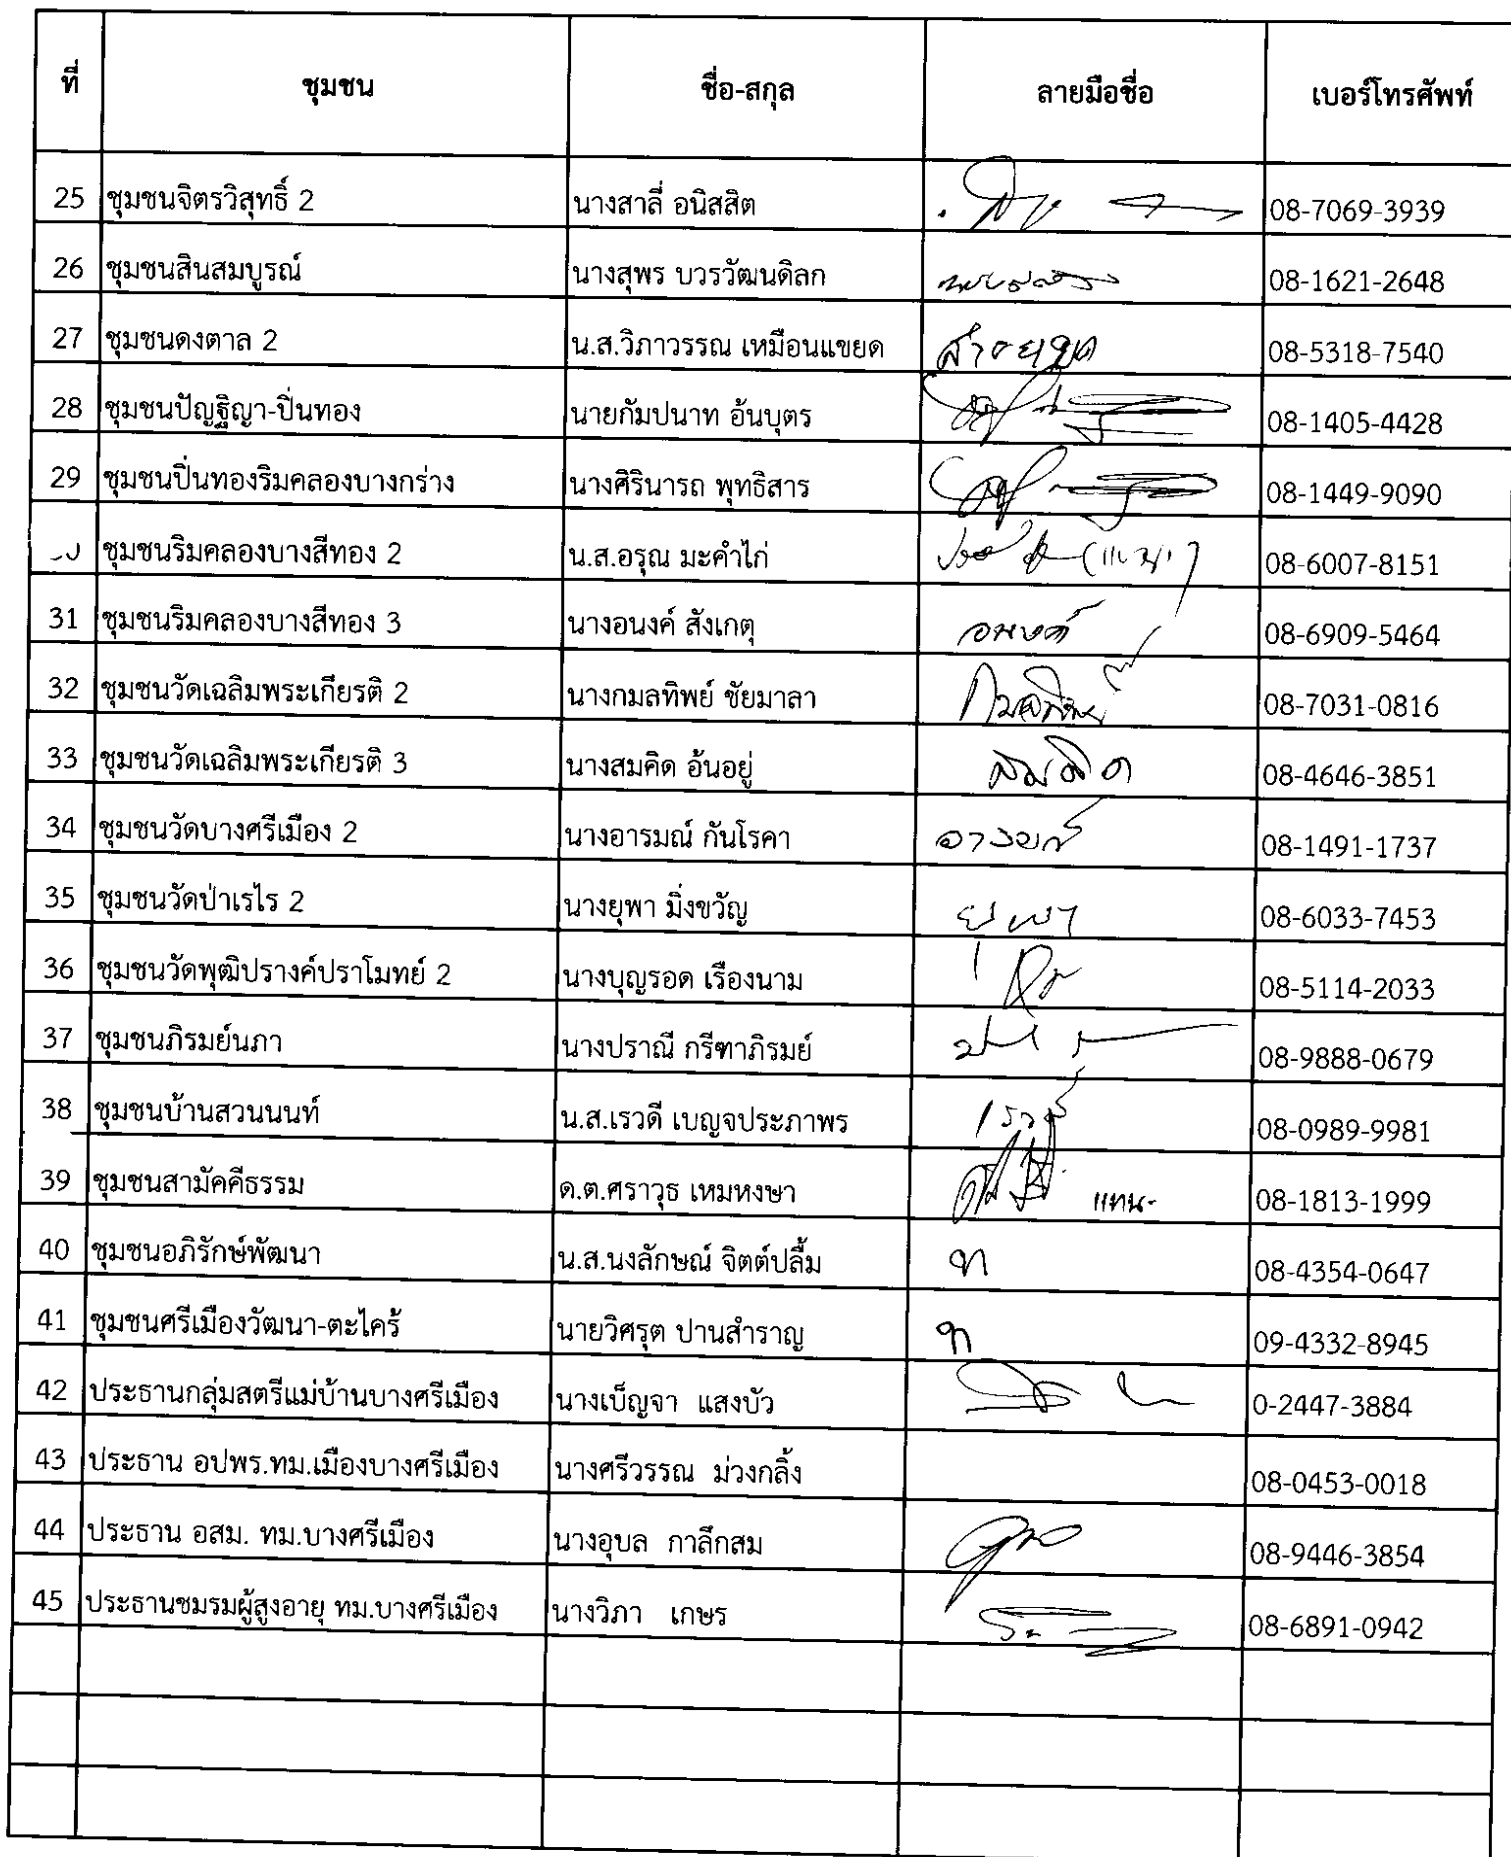 ที่ ชุมชน ชื่อ-สกุล ลายมือชื่อ เบอร์โทรศัพท์
25 ชุมชนจิตรวิสุทธิ์ 2 นางสาลี่ อนิสสิต 08-7069-3939
26 ชุมชนสินสมบูรณ์ นางสุพร บวรวัฒนดิลก 08-1621-2648
27 ชุมชนดงตาล 2 น.ส.วิภาวรรณ เหมือนแขยด 08-5318-7540
28 ชุมชนปัญฐิญา-ปิ่นทอง นายกัมปนาท อ้นบุตร 08-1405-4428
29 ชุมชนปิ่นทองริมคลองบางกร่าง นางศิรินารถ พุทธิสาร 08-1449-9090
ชุมชนริมคลองบางสีทอง 2 น.ส.อรุณ มะคำไก่ 08-6007-8151
31 ชุมชนริมคลองบางสีทอง 3 นางอนงค์ สังเกตุ อนงค์ 08-6909-5464
32 ชุมชนวัดเฉลิมพระเกียรติ 2 นางกมลทิพย์ ชัยมาลา กมลทิพย์ 08-7031-0816
33 ชุมชนวัดเฉลิมพระเกียรติ 3 นางสมคิด อ้นอยู่ สมคิด 08-4646-3851
34 ชุมชนวัดบางศรีเมือง 2 นางอารมณ์ กันโรคา อารมณ์ 08-1491-1737
35 ชุมชนวัดป่าเรไร 2 นางยุพา มิ่งขวัญ ยุพา 08-6033-7453
36 ชุมชนวัดพุฒิปรางค์ปราโมทย์ 2 นางบุญรอด เรืองนาม 08-5114-2033
37 ชุมชนภิรมย์นภา นางปราณี กรีฑาภิรมย์ 08-9888-0679
38 ชุมชนบ้านสวนนนท์ น.ส.เรวดี เบญจประภาพร เรวดี 08-0989-9981
39 ชุมชนสามัคคีธรรม ด.ต.ศราวุธ เหมหงษา แทน 08-1813-1999
40 ชุมชนอภิรักษ์พัฒนา น.ส.นงลักษณ์ จิตต์ปลื้ม 08-4354-0647
41 ชุมชนศรีเมืองวัฒนา-ตะไคร้ นายวิศรุต ปานสำราญ 09-4332-8945
42 ประธานกลุ่มสตรีแม่บ้านบางศรีเมือง นางเบ็ญจา แสงบัว 0-2447-3884
43 ประธาน อปพร.ทม.เมืองบางศรีเมือง นางศรีวรรณ ม่วงกลิ้ง 08-0453-0018
44 ประธาน อสม. ทม.บางศรีเมือง นางอุบล กาลึกสม 08-9446-3854
45 ประธานชมรมผู้สูงอายุ ทม.บางศรีเมือง นางวิภา เกษร 08-6891-0942